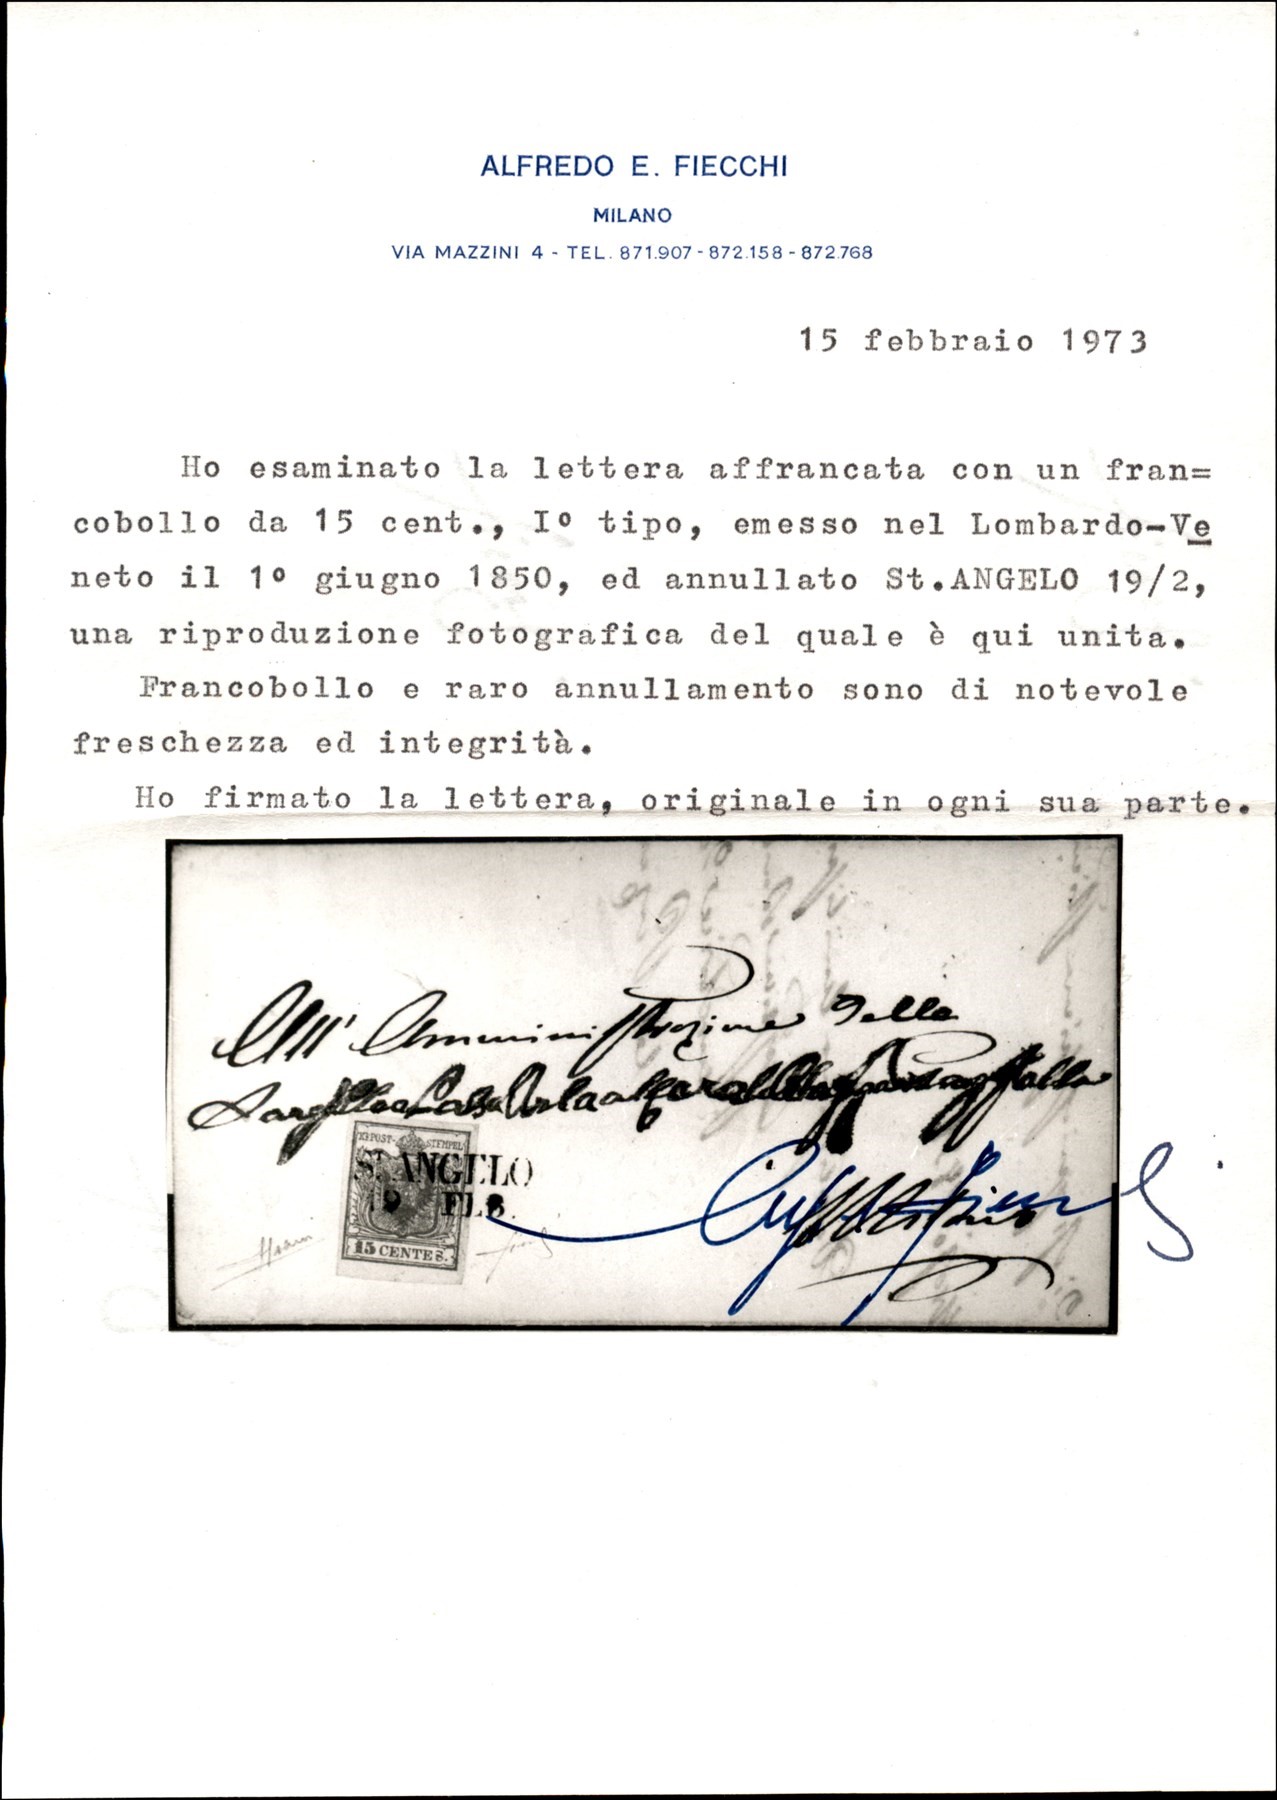 ALFREDO E. FIECCHI
MILANO
VIA MAZZINI 4 - TEL. 871.907 - 872.158 - 872.768
15 febbraio 1973
Ho esaminato la lettera affrancata con un fran=
cobollo da 15 cent., I° tipo, emesso nel Lombardo-Ve
neto il 1° giugno 1850, ed annullato St.ANGELO 19/2,
una riproduzione fotografica del quale è qui unita.
Francobollo e raro annullamento sono di notevole
freschezza ed integrità.
Ho firmato la lettera, originale in ogni sua parte.
All' Amministrazione della
KKPOST-STEMPEL
ST. ANGELO
FEB.
15 CENTES.